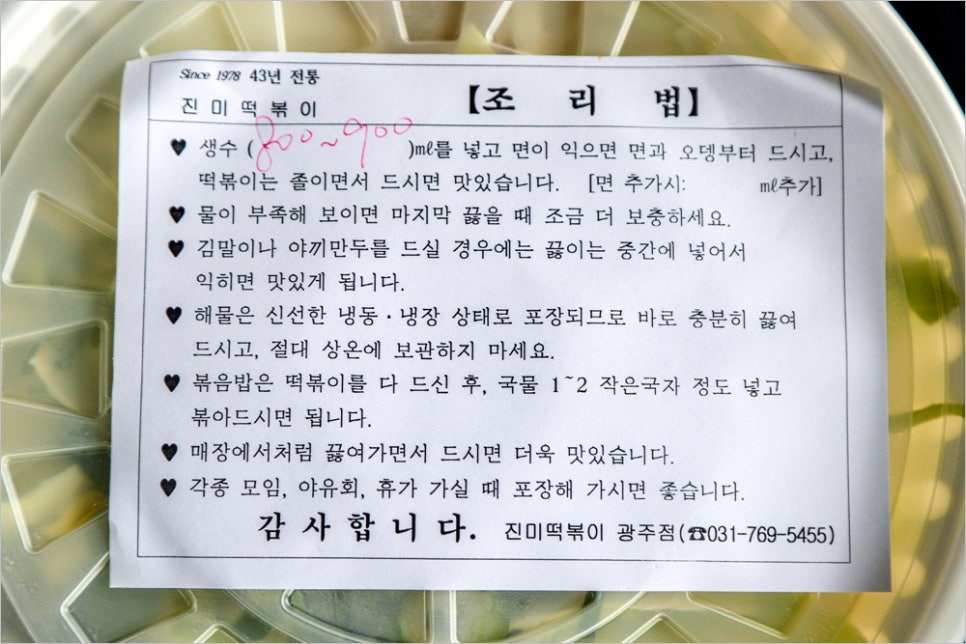 Since 1978 43년 전통
진미떡볶이 【조 리 법】
♥ 생수 ( 800~900 )㎖를 넣고 면이 익으면 면과 오뎅부터 드시고,
떡볶이는 졸이면서 드시면 맛있습니다. [면 추가시: ㎖추가]
♥ 물이 부족해 보이면 마지막 끓을 때 조금 더 보충하세요.
♥ 김말이나 야끼만두를 드실 경우에는 끓이는 중간에 넣어서
익히면 맛있게 됩니다.
♥ 해물은 신선한 냉동·냉장 상태로 포장되므로 바로 충분히 끓여
드시고, 절대 상온에 보관하지 마세요.
♥ 볶음밥은 떡볶이를 다 드신 후, 국물 1~2 작은국자 정도 넣고
볶아드시면 됩니다.
♥ 매장에서처럼 끓여가면서 드시면 더욱 맛있습니다.
♥ 각종 모임, 야유회, 휴가 가실 때 포장해 가시면 좋습니다.
감사합니다. 진미떡볶이 광주점(☎031-769-5455)